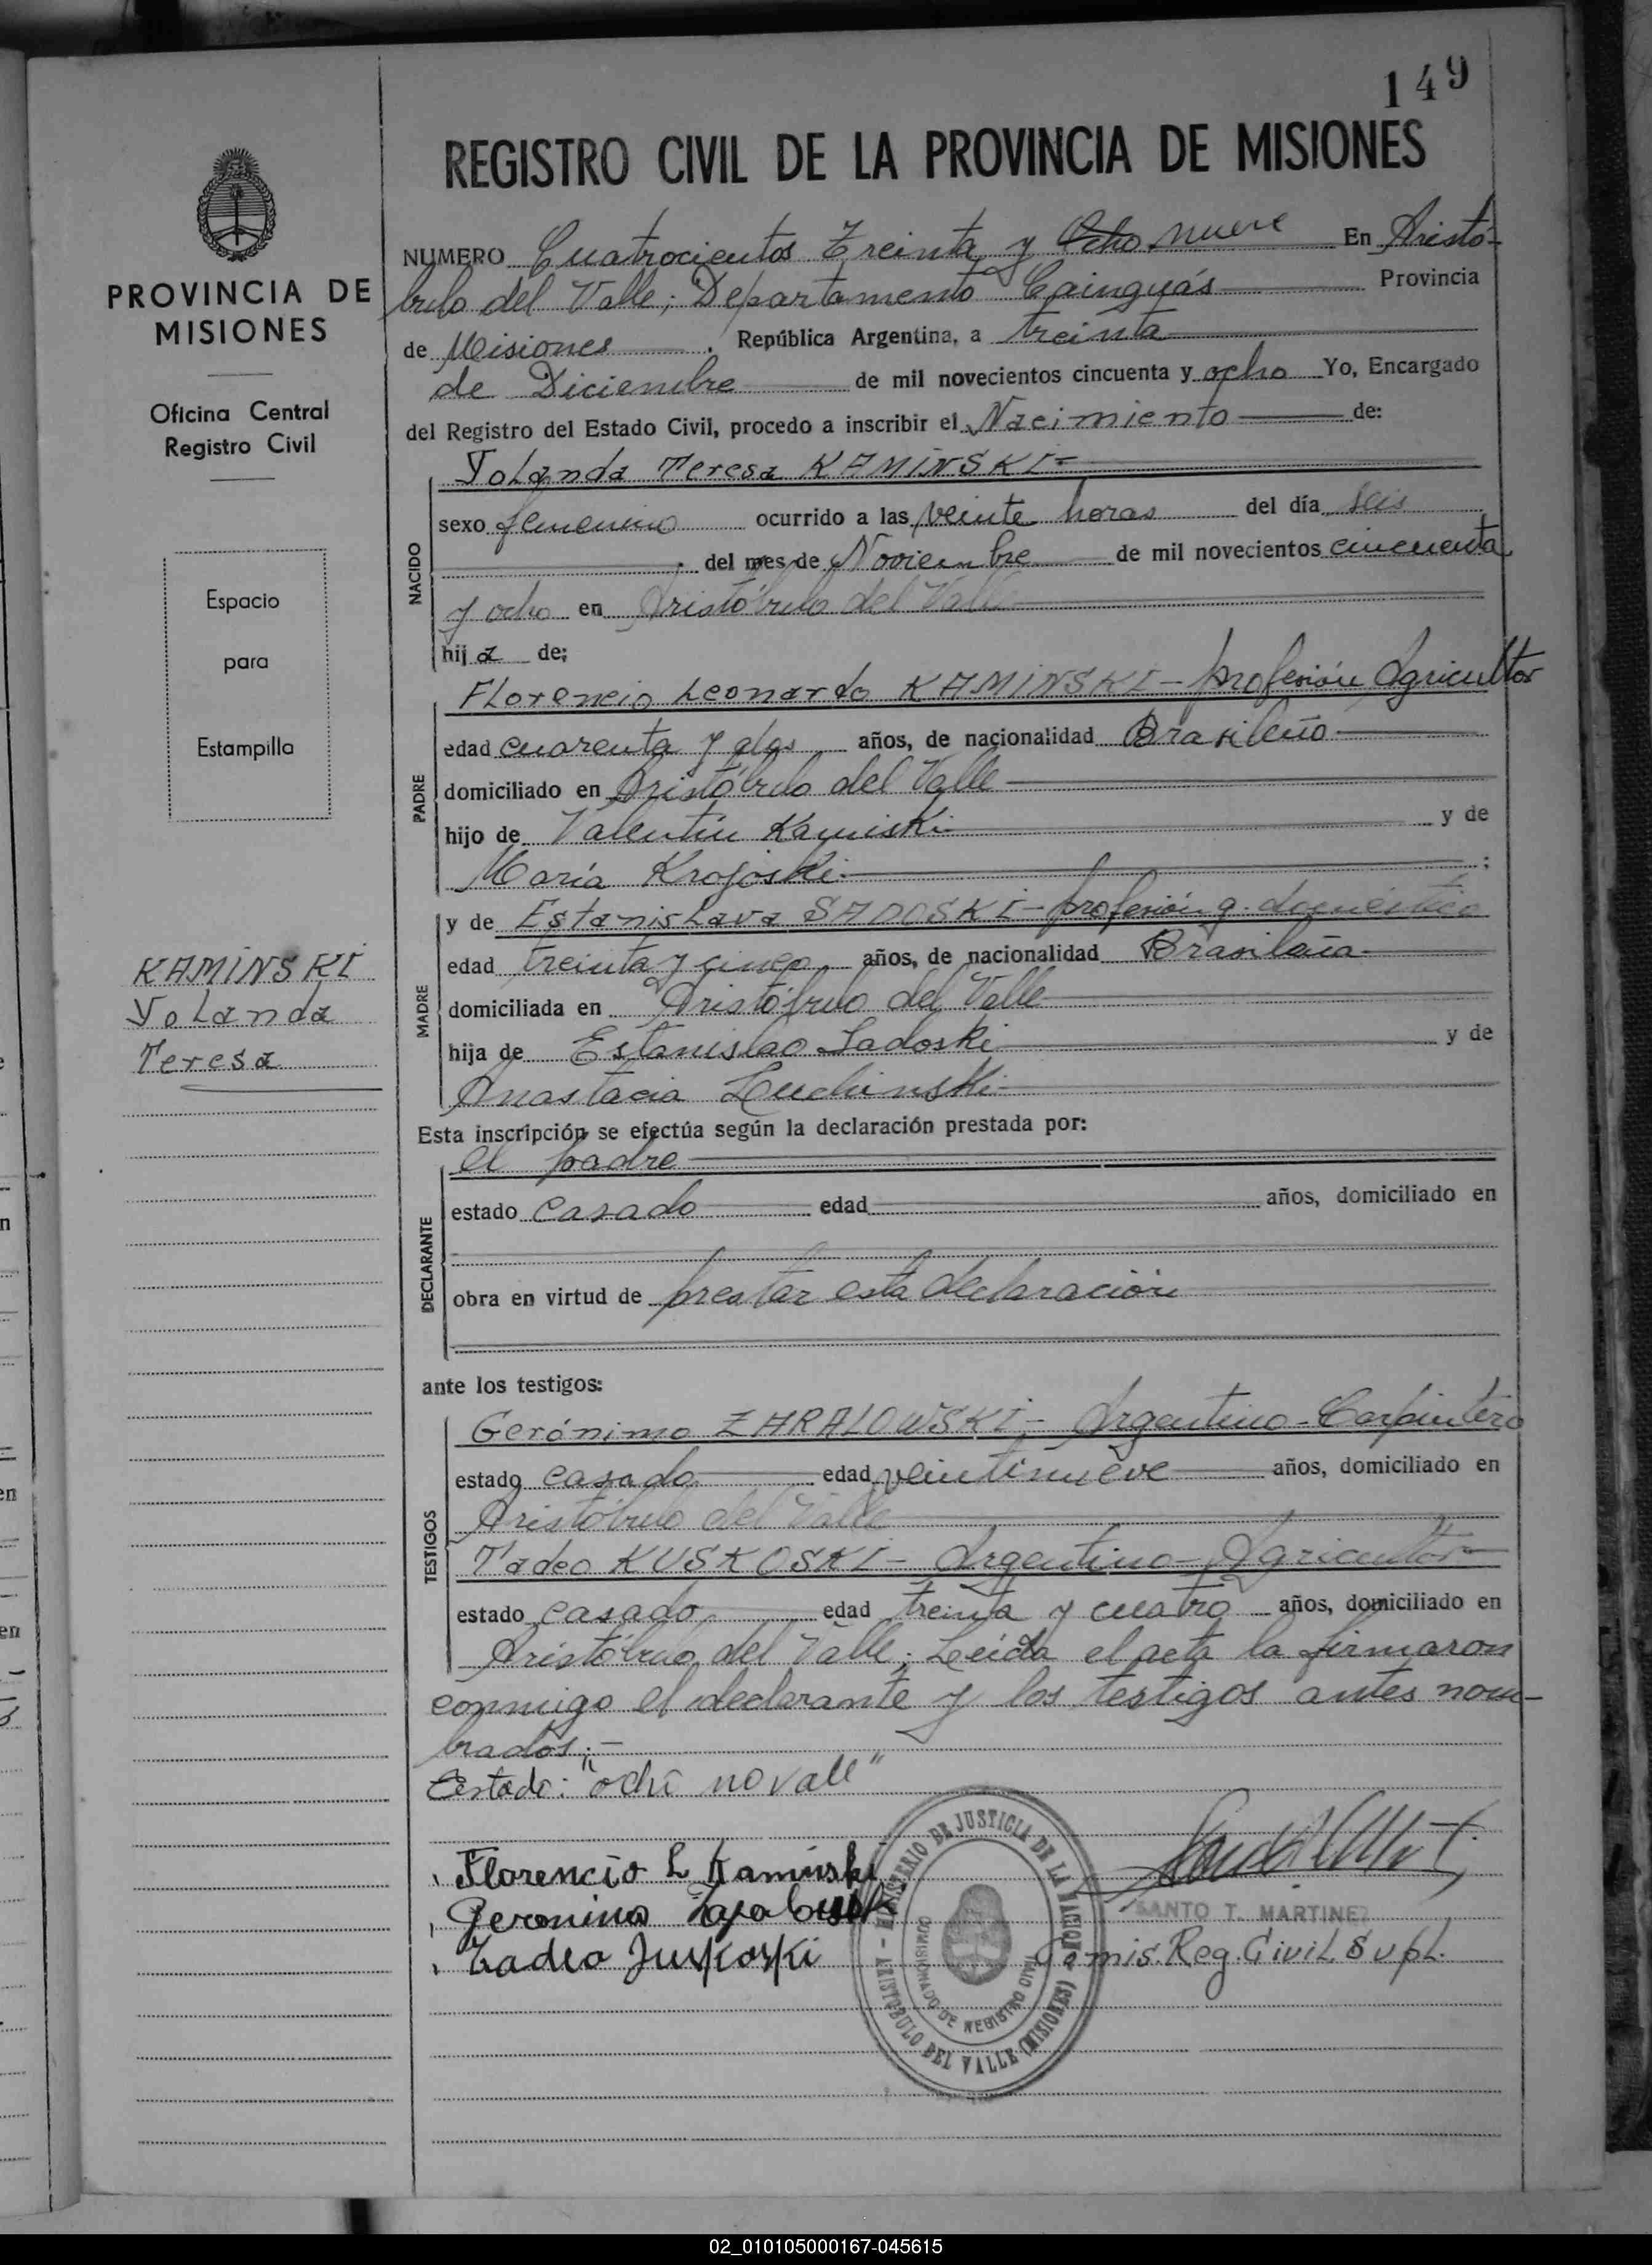 149
REGISTRO CIVIL DE LA PROVINCIA DE MISIONES
PROVINCIA DE
MISIONES
Oficina Central
Registro Civil
Espacio
para
Estampilla
KAMINSKI
Yolanda
Teresa
NUMERO Cuatrocientos Treinta y Ocho nueve En Aristó-
bulo del Valle; Departamento Cainguás Provincia
de Misiones . República Argentina, a treinta
de Diciembre de mil novecientos cincuenta y ocho Yo, Encargado
del Registro del Estado Civil, procedo a inscribir el Nacimiento de:
NACIDO
Yolanda Teresa KAMINSKI-
sexo femenino ocurrido a las veinte horas del día seis
del mes de Noviembre de mil novecientos cincuenta
y ocho en Aristóbulo del Valle
hija de;
PADRE
Florencio Leonardo KAMINSKI- profesión Agricultor
edad cuarenta y dos años, de nacionalidad Brasileño
domiciliado en Aristóbulo del Valle
hijo de Valentín Kamiski y de
María Krojoski ;
MADRE
y de Estanislava SADOSKI- profesión q. doméstico
edad treinta y cinco años, de nacionalidad Brasileña
domiciliada en Aristóbulo del Valle
hija de Estanislao Sadoski y de
Anastacia Luchinski
Esta inscripción se efectúa según la declaración prestada por:
DECLARANTE
el padre
estado casado edad años, domiciliado en
obra en virtud de prestar esta declaración
ante los testigos:
TESTIGOS
Gerónimo ZARALOWSKI- Argentino- Carpintero
estado casado edad veintinueve años, domiciliado en
Aristóbulo del Valle
Tadeo KUSKOSKI- Argentino- Agricultor
estado casado edad treinta y cuatro años, domiciliado en
Aristóbulo del Valle; Leída el acta la firmaron
conmigo el declarante y los testigos antes nom-
brados.-
Testado: "ocho no vale"
Florencio L Kaminski
Geronimo
Tadeo Juskoski
MINISTERIO DE JUSTICIA DE LA NACION
COMISIONADO DE REGISTRO CIVIL
ARISTOBULO DEL VALLE (MISIONES)
SANTO T. MARTINEZ
Comis. Reg. Civil Supl.
02_010105000167-045615